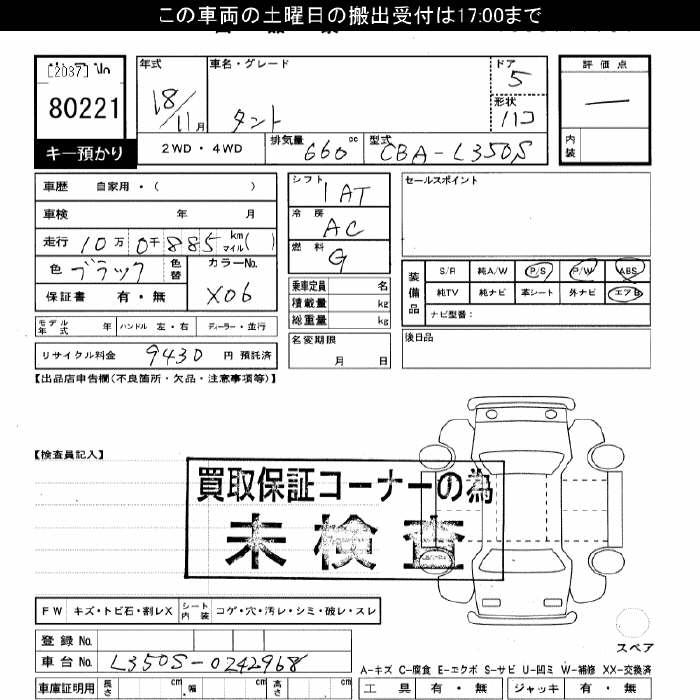 この車両の土曜日の搬出受付は17:00まで
[2037]
80221
キー預かり
年式
18/11月
車名・グレード
タント
ドア
5
形状
ハコ
評価点
―
内装
2WD・4WD
排気量
660
cc
型式
CBA-L350S
車歴 自家用・( )
車検 年 月
走行 10万0千885 km マイル( )
色 ブラック
色替
カラーNo.
X06
保証書 有・無
モデル年式 年 ハンドル 左・右 ディーラー・並行
リサイクル料金 9430 円 預託済
シフト
IAT
冷房
AC
燃料
G
乗車定員 名
積載量 kg
総重量 kg
名変期限
月 日
セールスポイント
装備品
S/R 純A/W P/S P/W ABS
純TV 純ナビ 革シート 外ナビ エアB
ナビ型番:
後日品
【出品店申告欄(不良箇所・欠品・注意事項等)】
【検査員記入】
買取保証コーナーの為
未検査
FW キズ・トビ石・割レX シート内装 コゲ・穴・汚レ・シミ・破レ・スレ
登録No.
車台No. L350S-0242968
車庫証明用 長さ cm 幅 cm 高さ cm
スペア
A-キズ C-腐食 E-エクボ S-サビ U-凹ミ W-補修 XX-交換済
工具 有・無 ジャッキ 有・無